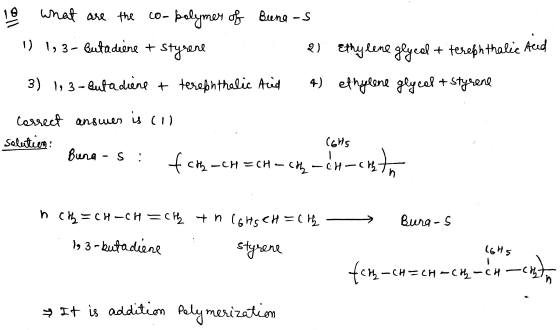 18 What are the co-polymer of Buna-S
1) 1,3-Butadiene + Styrene 2) Ethylene glycol + terephthalic Acid
3) 1,3-Butadiene + terephthalic Acid 4) ethylene glycol + styrene
Correct answer is (1)
Solution:
C6H5
Buna-S : -[CH2-CH=CH-CH2-CH-CH2]-n
n CH2=CH-CH=CH2 + n C6H5CH=CH2 ⟶ Buna-S
1,3-butadiene styrene
C6H5
-[CH2-CH=CH-CH2-CH-CH2]-n
⇒ It is addition Polymerization